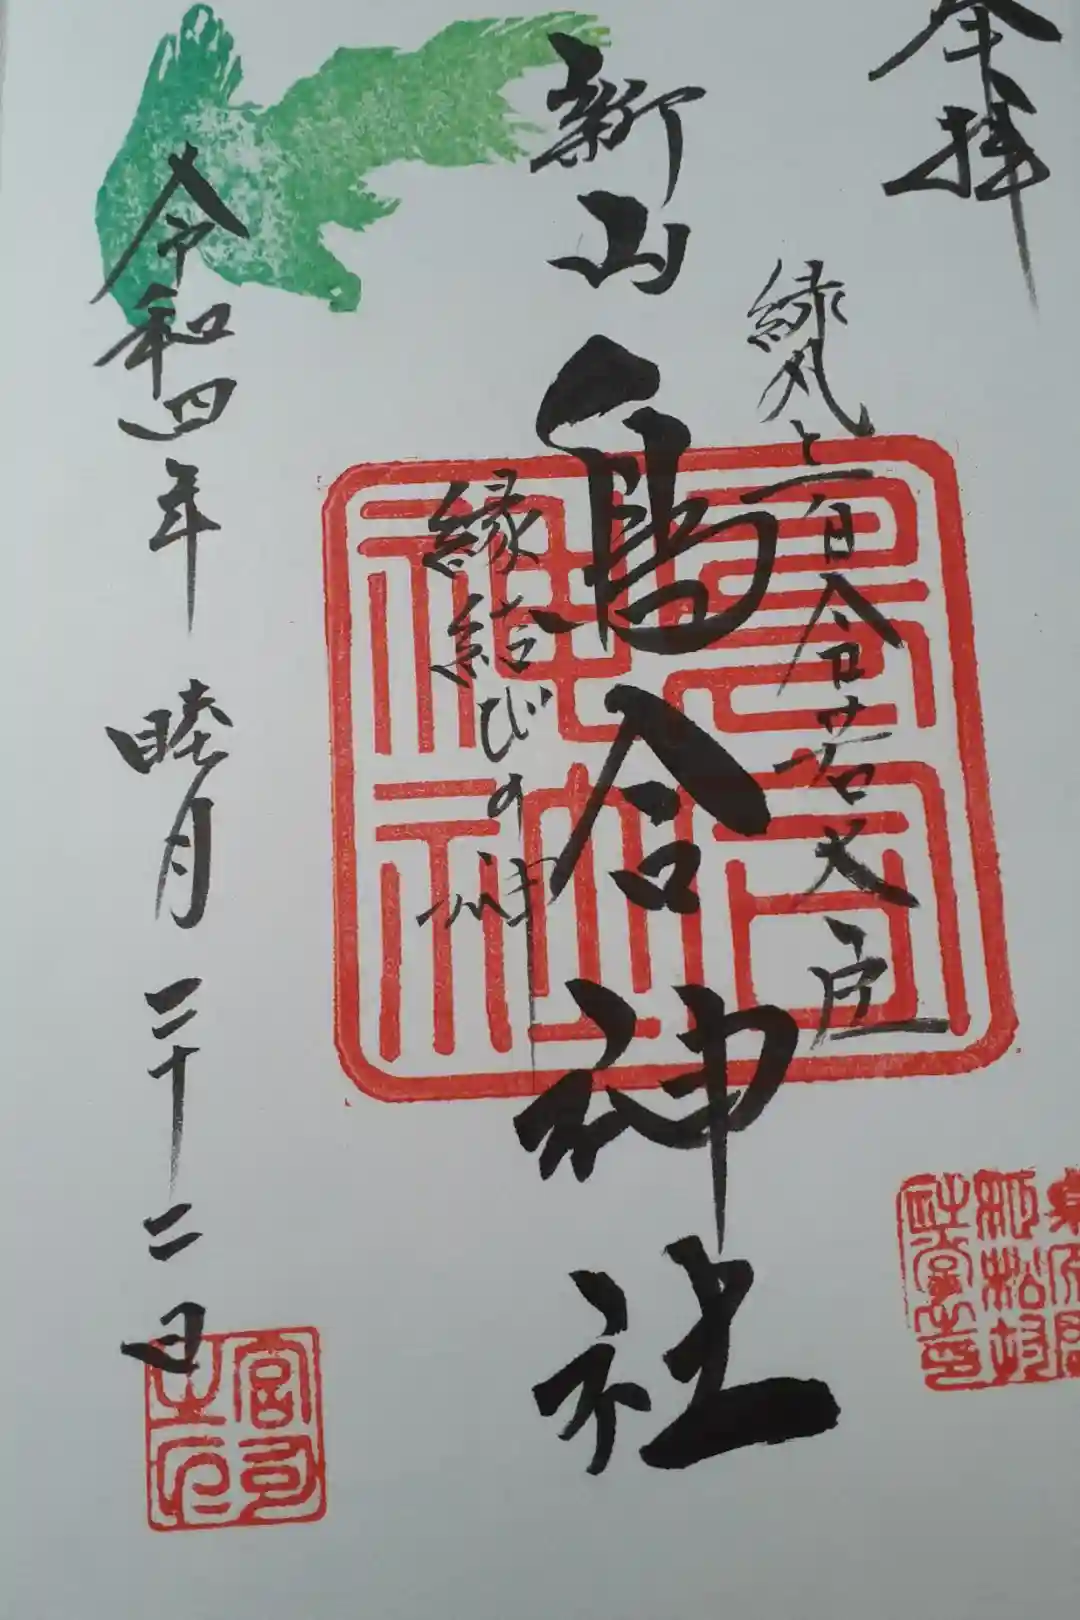 奉拝
緑丸と百合若大臣
新山鳥合神社
縁結びの神
令和四年 睦月 二十二日
宮司之印